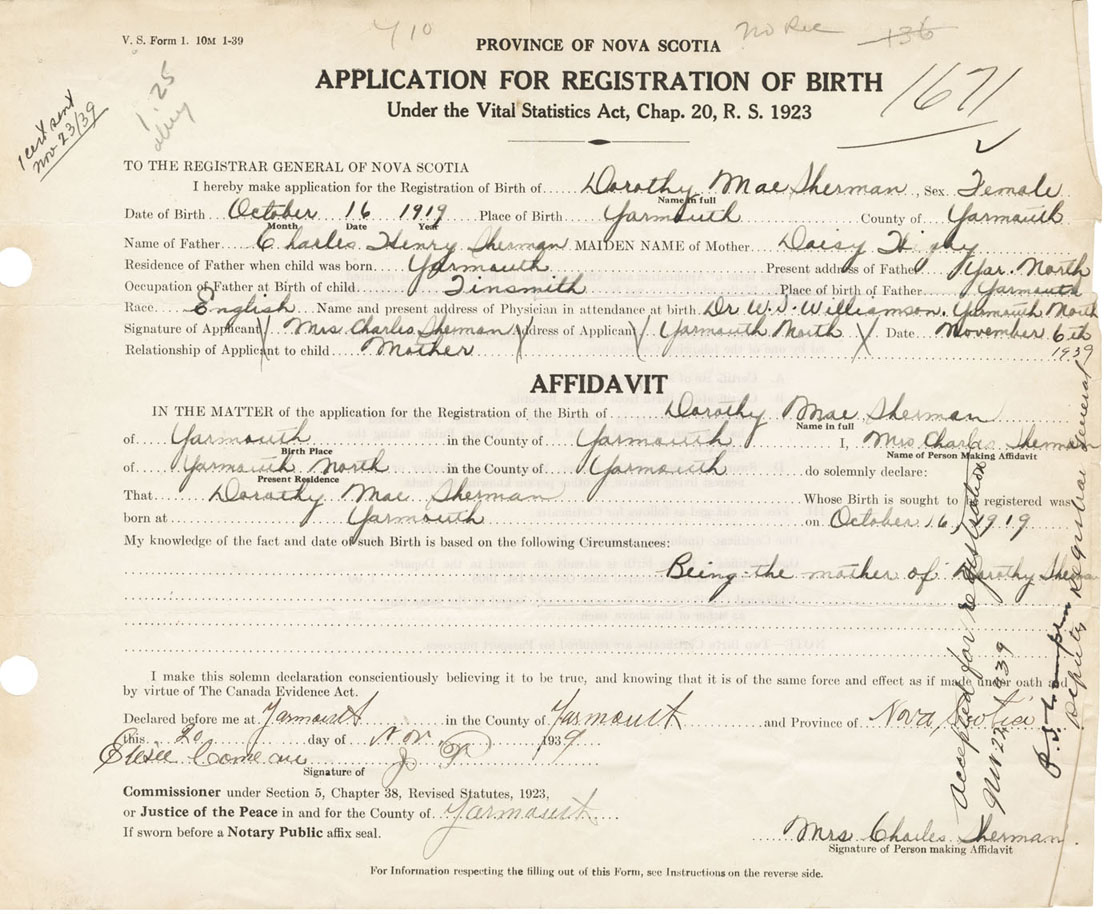 V. S. Form 1. 10M 1-39
710
No Rec
136
PROVINCE OF NOVA SCOTIA
APPLICATION FOR REGISTRATION OF BIRTH
1671
Under the Vital Statistics Act, Chap. 20, R. S. 1923
1.25
1 cert sent
Nov 23/39
TO THE REGISTRAR GENERAL OF NOVA SCOTIA
I hereby make application for the Registration of Birth of Dorothy Mae Sherman, Sex Female
Name in full
Date of Birth October 16 1919 Place of Birth Yarmouth County of Yarmouth
Month Date Year
Name of Father Charles Henry Sherman MAIDEN NAME of Mother Daisy
Residence of Father when child was born Yarmouth Present address of Father Yar. North
Occupation of Father at Birth of child Tinsmith Place of birth of Father Yarmouth
Race English Name and present address of Physician in attendance at birth Dr W. S. Williamson. Yarmouth North
Signature of Applicant Mrs. Charles Sherman Address of Applicant Yarmouth North Date November 6th
1939
Relationship of Applicant to child Mother
AFFIDAVIT
IN THE MATTER of the application for the Registration of the Birth of Dorothy Mae Sherman
Name in full
of Yarmouth in the County of Yarmouth I, Mrs Charles Sherman
Birth Place Name of Person Making Affidavit
of Yarmouth North in the County of Yarmouth do solemnly declare:
Present Residence
That Dorothy Mae Sherman Whose Birth is sought to be registered was
born at Yarmouth on October 16, 1919.
My knowledge of the fact and date of such Birth is based on the following Circumstances:
Being the mother of Dorothy Sherman
I make this solemn declaration conscientiously believing it to be true, and knowing that it is of the same force and effect as if made under oath and
by virtue of The Canada Evidence Act.
Declared before me at Yarmouth in the County of Yarmouth and Province of Nova Scotia
this 20 day of Nov 1939
Elisée Comeau J P
Signature of
Commissioner under Section 5, Chapter 38, Revised Statutes, 1923,
or Justice of the Peace in and for the County of Yarmouth
If sworn before a Notary Public affix seal.
Mrs Charles Sherman.
Signature of Person making Affidavit
For Information respecting the filling out of this Form, see Instructions on the reverse side.
Accepted for registration
Nov 22 1939
Deputy Registrar General